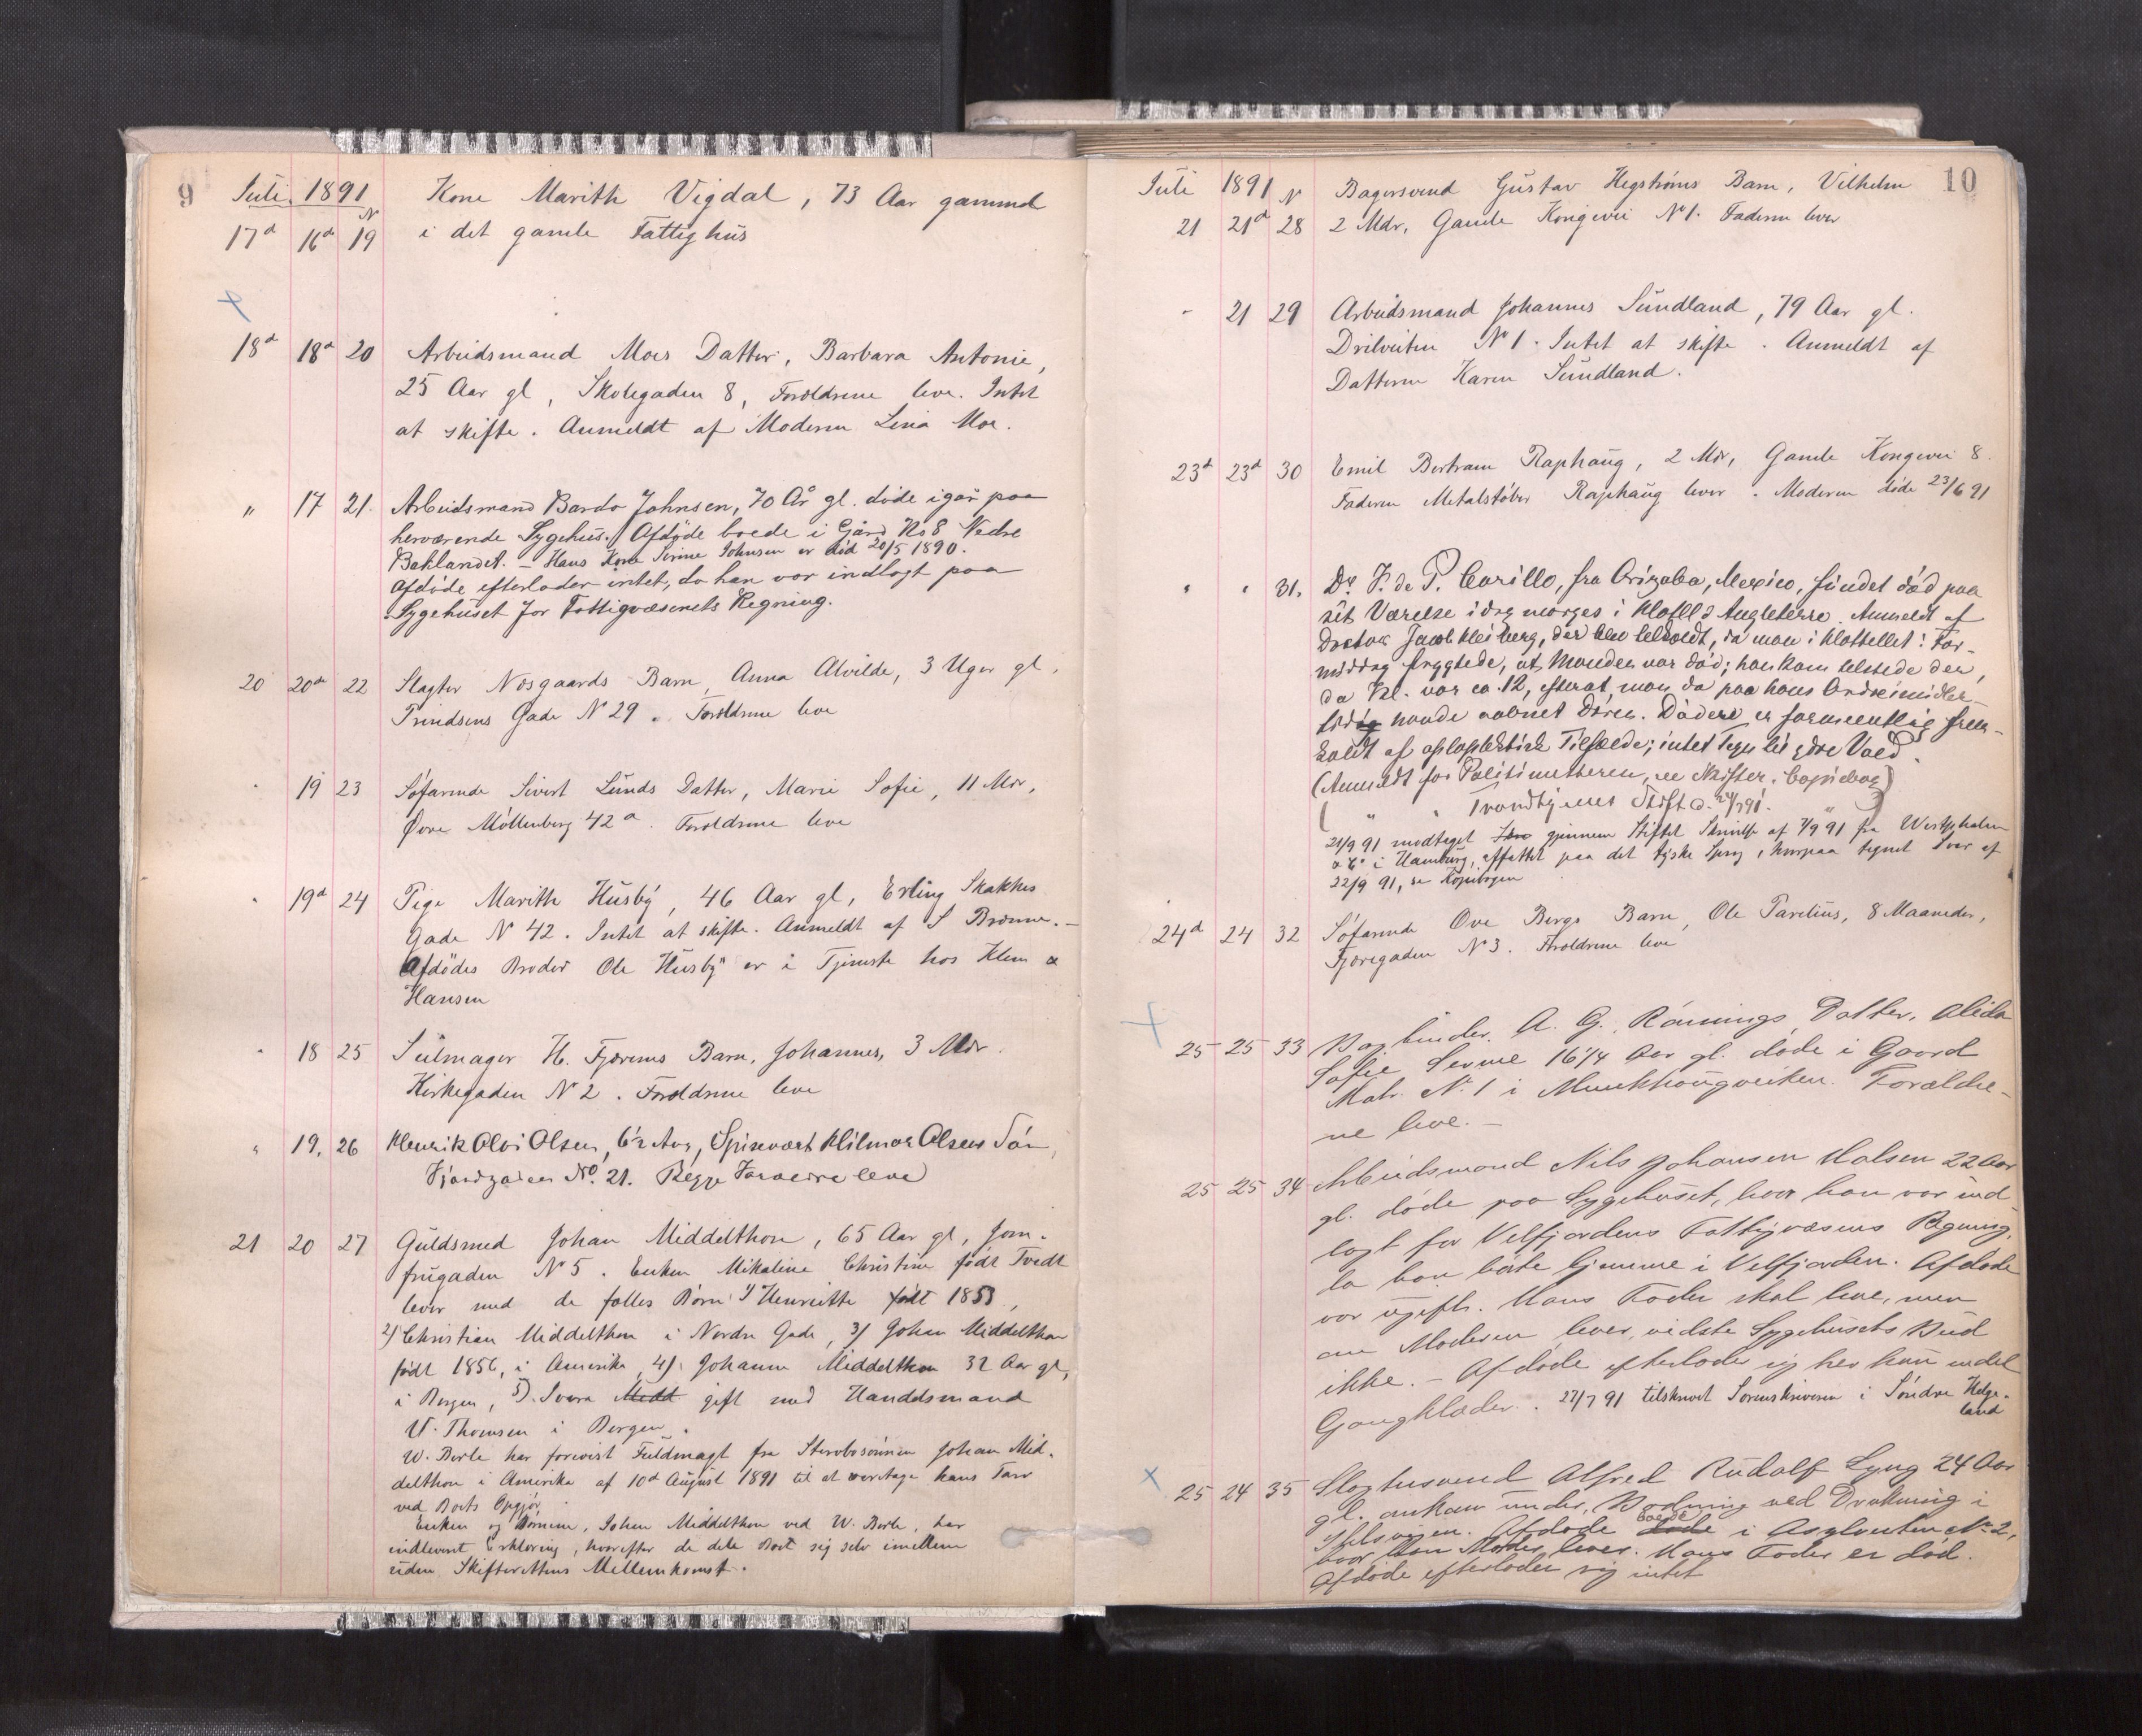 9
Juli 1891
N
17d 16d 19 Kone Marith Vigdal, 73 Aar gammel
i det gamle Fattighus
18d 18d 20 Arbeidsmand Moes Datter, Barbara Antonie,
25 Aar gl, Skolegaden 8, Forældrene leve. Intet
at skifte. Anmeldt af Moderen Lina Moe.
" 17 21. Arbeidsmand Bardo Johnsen, 70 År gl. døde igår paa
herværende Sygehus. Afdøde boede i Gård No 8 Nedre
Baklandet. – Hans Kone Sirine Johnsen er død 20/5 1890.
Afdøde efterlader intet, da han var indlagt paa
Sygehuset for Fattigvæsenets Regning.
20 20de 22 Slagter Næsgaards Barn, Anna Alvilde, 3 Uger gl,
Prindsens Gade N 29. Forældrene leve
" 19 23 Søfarende Sivert Lunds Datter, Marie Sofie, 11 Mdr,
Øvre Møllenberg 42 a. Forældrene leve
" 19d 24 Pige Marith Husby, 46 Aar gl, Erling Skakkes
Gade N 42. Intet at skifte. Anmeldt af S Brønne. –
Afdødes Broder Ole Husby er i Tjeneste hos Klem &
Hansen
" 18 25 Seilmager H. Fjærems Barn, Johannes, 3 Mdr.
Kirkegaden N 2. Forældrene leve
" 19. 26 Henrik Olvi Olsen, 6½ Aar, Spisevært Hilmar Olsens Søn,
Fjordgaden No. 21. Begge Forældre leve
21 20 27 Guldsmed Johan Middelthon, 65 Aar gl, Jom-
frugaden N 5. Enken Mikaline Christine født Tvedt
lever med de fælles Børn 1) Henriette født 1853,
2) Christian Middelthon i Nordre Gade, 3) Johan Middelthon
født 1856, i Amerika, 4) Johanne Middelthon 32 Aar gl,
i Bergen, 5) Svava Midd gift med Handelsmand
V. Thomsen i Bergen.
W. Berle har forevist Fuldmagt fra Stervbosønnen Johan Mid-
delthon i Amerika af 10d August 1891 til at varetage hans Tarv
ved Boets Opgjør.
Enken og Børnene, Johan Middelthon ved W. Berle, har
indleveret Erklæring, hvorefter de dele Boet sig selv imellem
uden Skifterettens Mellemkomst.
10
Juli 1891 N
21 21d 28 Bagersvend Gustav Hegstrøms Barn, Vilhelm
2 Mdr, Gamle Kongevei N 1. Faderen lever
" 21 29 Arbeidsmand Johannes Sundland, 79 Aar gl.
Drilveiten N 1. Intet at skifte. Anmeldt af
Datteren Karen Sundland.
23d 23d 30 Emil Bertram Raphaug, 2 Mdr, Gamle Kongevei 8.
Faderen Metalstøber Raphaug lever. Moderen døde 23/6 91
" " 31. Dr. F. de P. Carillo, fra Orizaba, Mexico, fundet død paa
sit Værelse idag morges i Hotell d'Angleterre. Anmeldt af
Doctor Jacob Heiberg, der blev tilkaldt, da man i Hottellet i For-
middag frygtede, at Manden var død; han kom tilstede der,
da Kl. var ca. 12, efterat man da paa hans Ordre imidler-
tidig havde aabnet Døren. Døden er formentlig frem-
kaldt af apoplektisk Tilfælde; intet Tegn til ydre Vold.
(Anmeldt for Politimesteren, se Skifter. Copiebog)
( " " Trondhjems Stift d. 24/7 91. " )
21/9 91 modtaget gjennem Stiftet Skrivelse af 7/9 91 fra Westphalen
& Co i Hamburg, affattet paa det tyske Sprog, hvorpaa tegnet Svar af
22/9 91, se Kopibogen
24d 24 32 Søfarende Ove Bergs Barn, Ole Parelius, 8 Maaneder,
Fjæregaden N 3. Forældrene leve
25 25 33 Bogbinder A. G. Rønnings Datter, Alida
Sofie Senne 16 1/4 Aar gl. døde i Gaard
Matr. N. 1 i Munkhaugveiten. Forældre-
ne leve. –
25 25 34 Arbeidsmand Nils Johansen Halsen 22 Aar
gl. døde paa Sygehuset, hvor han var ind
lagt for Velfjordens Fattigvæsens Regning,
da han hørte hjemme i Velfjorden. Afdøde
var ugift. Hans Fader skal leve, men
om Moderen lever, vidste Sygehusets Bud
ikke. – Afdøde efterlader sig her kun endel
Gangklæder. 27/7 91 tilskrevet Sorenskriveren i Søndre Helge-
land
25 24 35 Slagtersvend Alfred Rudolf Lyng 24 Aar
gl. omkom under Badning ved Drukning i
Ihlsvigen. Afdøde boede i Asylveiten N 2,
hvor Moder lever. Hans Fader er død.
Afdøde efterlader sig intet